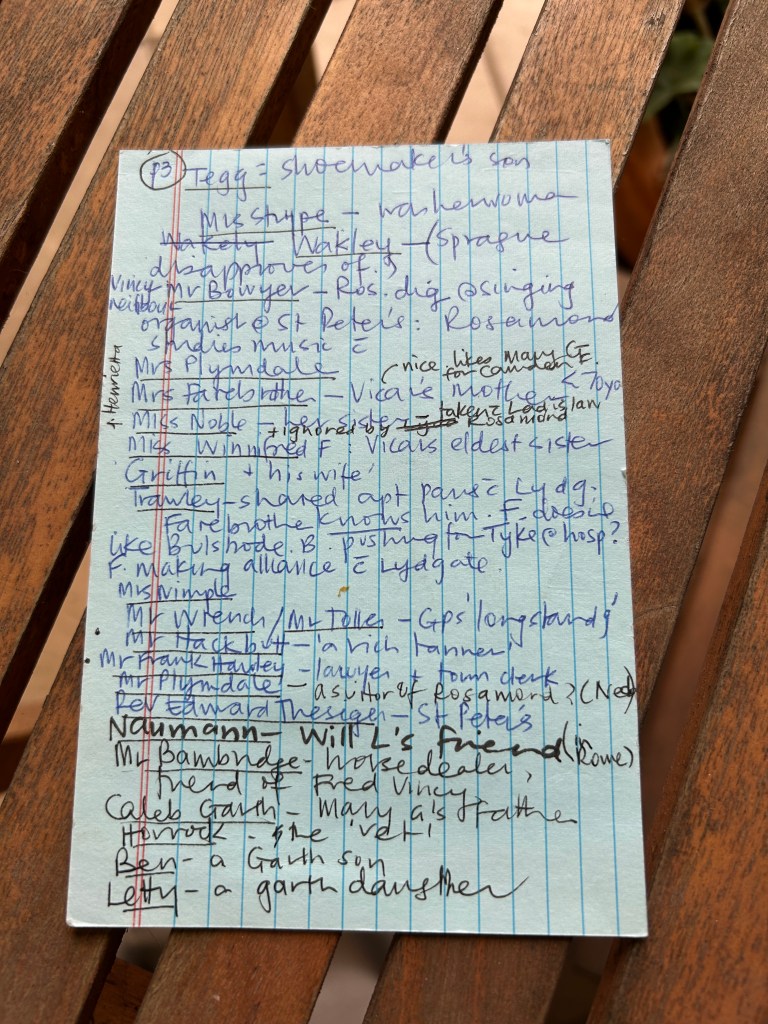 p3 Tegg = shoemaker's son
Mrs Strype - washerwoma
Wakely Wakley - (Sprague
disapproves of)
Vincy neibour Mr Bowyer - Ros. dig @ singing
organist @ St Peter's: Rosamond
studies music c̄
Mrs Plymdale
nice likes Mary G for Camden F.
Mrs Farebrother - Vicar's Mother < 70yo
+ Henrietta
Miss Noble - her sister - taken c̄ Ladislaw
+ ignored by Rosamond
Miss Winnifred F: Vicar's eldest sister
Griffin + his wife
Trawley - shared apt paris c̄ Lydg.
Farebrothe knows him. F. doesn't
like Bulstrode. B. pushing for Tyke @ hosp?
F. making alliance c̄ Lydgate.
Mrs Nimple
Mr Wrench / Mr Toller - GPs 'longstandg'
Mr Hackbutt - 'a rich tanner'
Mr Frank Hawley - lawyer + town clerk
Mr Plymdale - a suitor of Rosamond? (Ned)
Rev Edward Thesiger - St Peter's
Naumann - Will L's friend (Rome)
Mr Bambridge - horse dealer,
friend of Fred Vincy
Caleb Garth - Mary G's father
Horrock - the 'vet'
Ben - a Garth son
Letty - a garth daugther